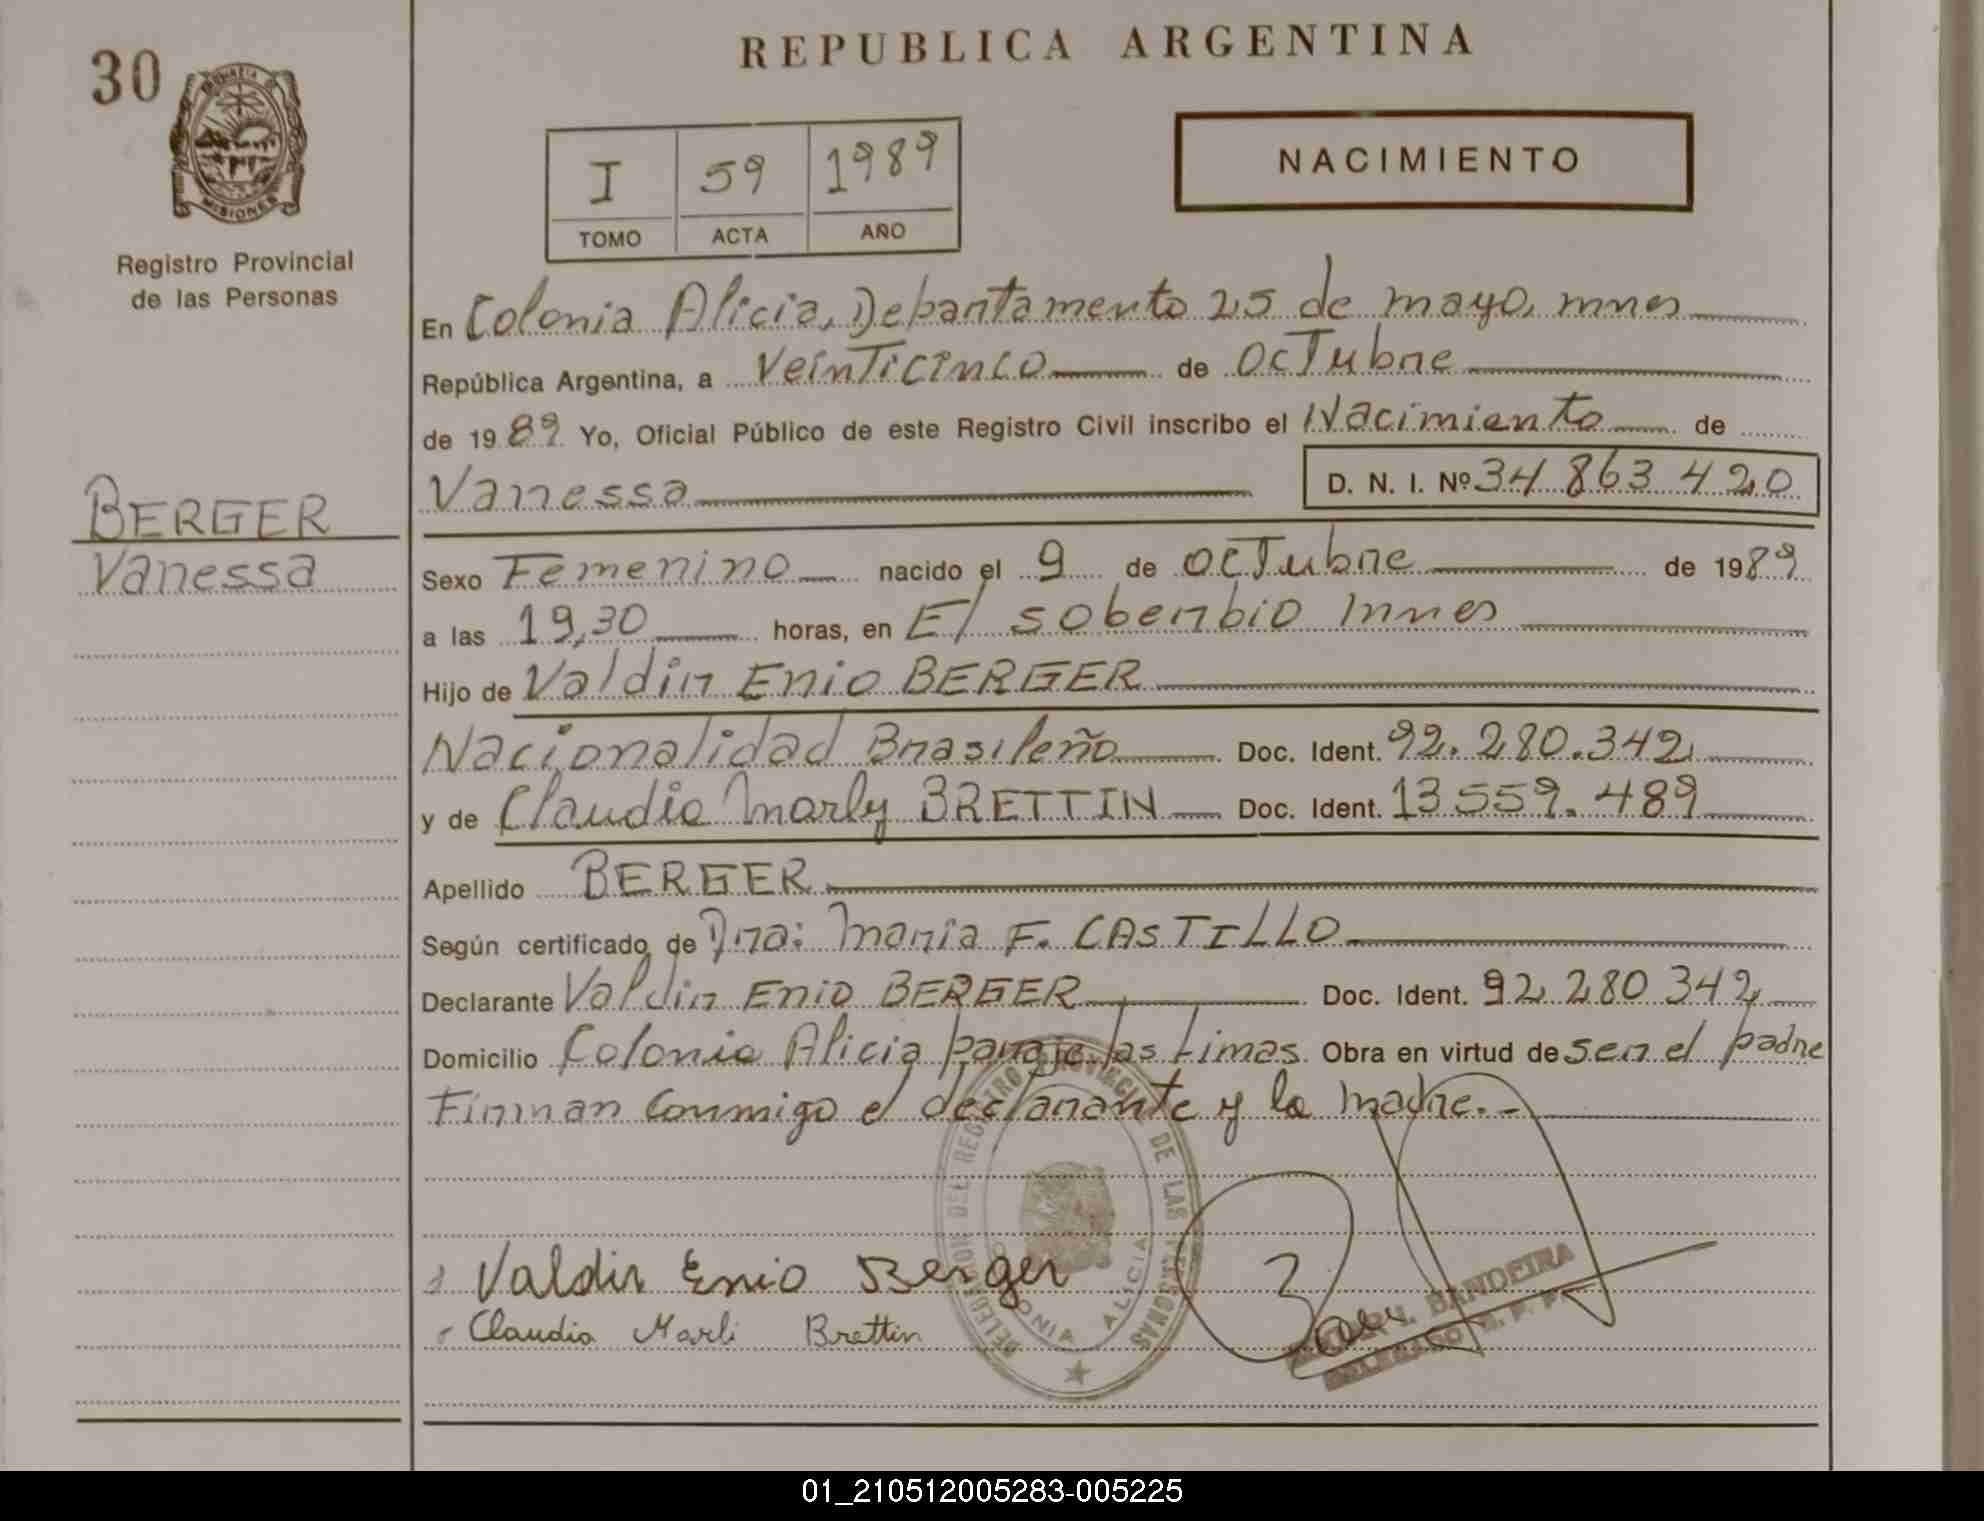 30
REPUBLICA ARGENTINA
MISIONES
Registro Provincial
de las Personas
I 59 1989
TOMO ACTA AÑO
NACIMIENTO
En Colonia Alicia, Departamento 25 de mayo, mnes
República Argentina, a Veinticinco de Octubre
de 1989 Yo, Oficial Público de este Registro Civil inscribo el Nacimiento de
Vanessa D. N. I. Nº 34 863 420
BERGER
Vanessa
Sexo Femenino nacido el 9 de Octubre de 1989
a las 19,30 horas, en El soberbio mnes
Hijo de Valdir Enio BERGER
Nacionalidad Brasileño Doc. Ident. 92.280.342
y de Claudia Marly BRETTIN Doc. Ident. 13.559.489
Apellido BERGER
Según certificado de Dra: Maria F. CASTILLO
Declarante Valdir Enio BERGER Doc. Ident. 92 280 342
Domicilio Colonia Alicia paraje las Limas Obra en virtud de ser el padre
Firman conmigo el declarante y la madre.-
Valdir Enio Berger
Claudia Marli Brettin
REGISTRO PROVINCIAL DE LAS PERSONAS
COLONIA ALICIA
BANDEIRA
01_210512005283-005225